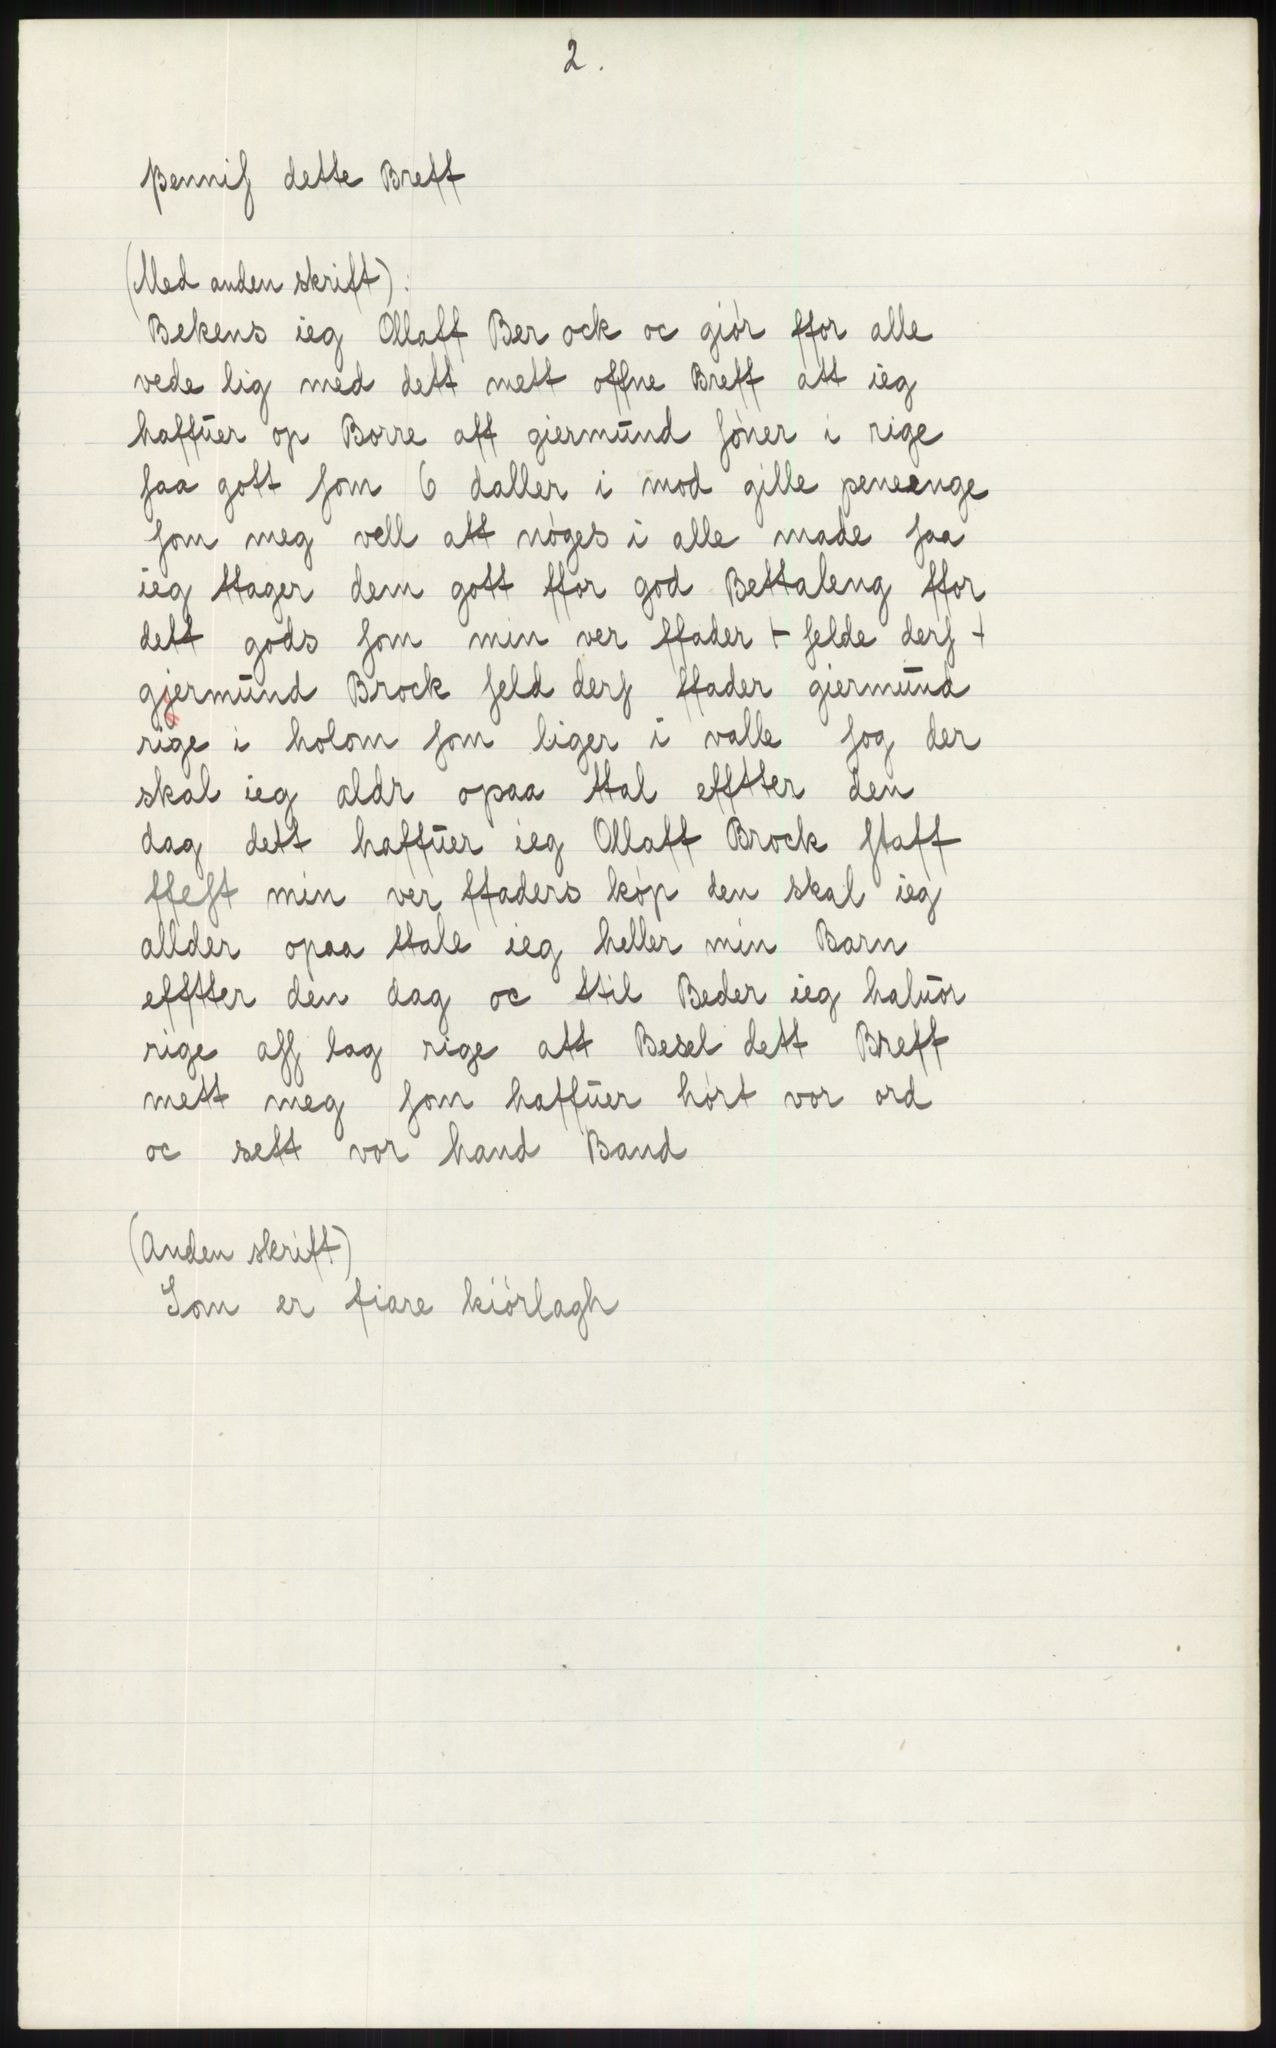 2.
þenniſ dette Breff
(Med anden skrift):
Bekens ieg Ollaff Ber ock oc giór ffor alle
vede lig med dett mett offne Breff att ieg
haffŭer op Borre aff giermŭnd ſóner i rige
ſaa gott ſom 6 daller i mod gille peneenge
ſom meg vell att nóges i alle made ſaa
ieg ttager dem gott ffor god Bettaleng ffor
dett gods ſom min ver ffader + ſelde derſ +
gjermŭnd Brock ſeld derſ ffader giermŭnd
rige i holom ſom liger i valle ſog der
skal ieg aldr opaa ttal effter den
dag dett haffŭer ieg Ollaff Brock ſtaff
ffeſt min ver ffaders kóp den skal ieg
allder opaa ttale ieg heller min Barn
effter den dag oc ttil Beder ieg halŭor
rige aff lag rige att Besel dett Breff
mett meg ſom haffŭer hórt vor ord
oc sett vor hand Band
(Anden skrift)
Som er fiare kiórlagh